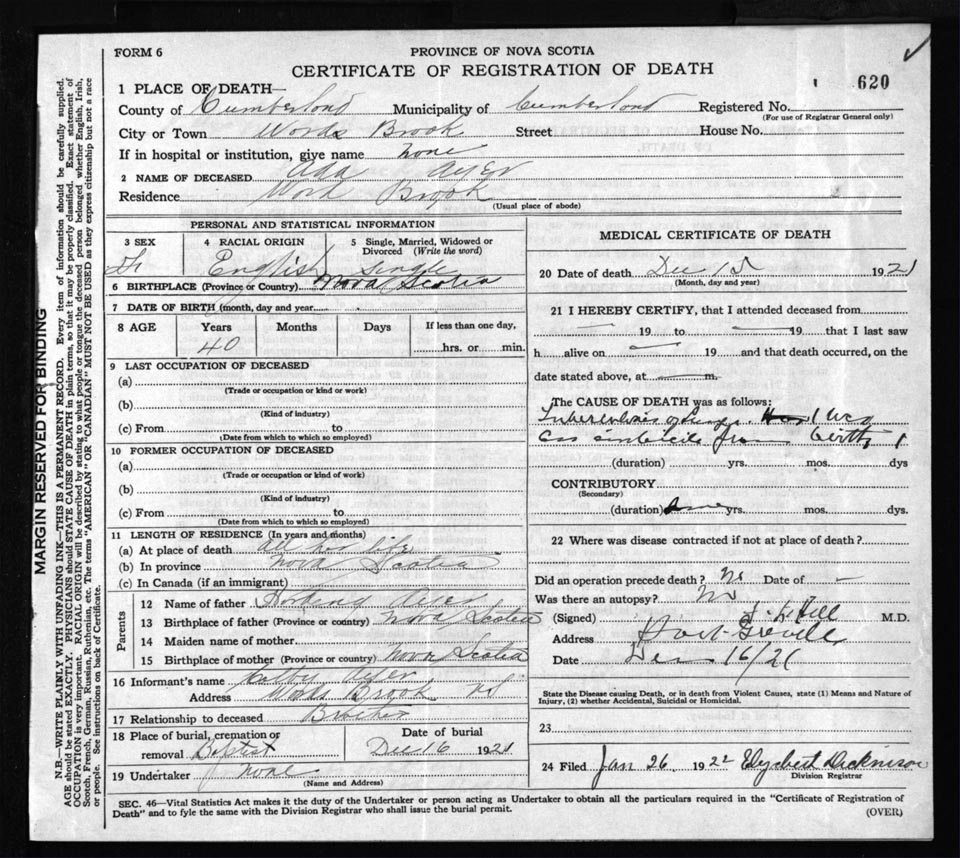 FORM 6
PROVINCE OF NOVA SCOTIA
CERTIFICATE OF REGISTRATION OF DEATH
620
1 PLACE OF DEATH—
County of Cumberland Municipality of Cumberland Registered No.
(For use of Registrar General only)
City or Town Words Brook Street House No.
If in hospital or institution, give name none
2 NAME OF DECEASED Ada Ayer
Residence Word Brook
(Usual place of abode)
PERSONAL AND STATISTICAL INFORMATION
3 SEX
4 RACIAL ORIGIN
5 Single, Married, Widowed or Divorced (Write the word)
English Single
6 BIRTHPLACE (Province or Country) Nova Scotia
7 DATE OF BIRTH (month, day and year)
8 AGE Years Months Days If less than one day,
40 hrs. or min.
9 LAST OCCUPATION OF DECEASED
(a)
(Trade or occupation or kind of work)
(b)
(Kind of industry)
(c) From to
(Date from which to which so employed)
10 FORMER OCCUPATION OF DECEASED
(a)
(Trade or occupation or kind of work)
(b)
(Kind of industry)
(c) From to
(Date from which to which so employed)
11 LENGTH OF RESIDENCE (In years and months)
(a) At place of death all her life
(b) In province Nova Scotia
(c) In Canada (if an immigrant)
Parents
12 Name of father Ayer
13 Birthplace of father (Province or country) Nova Scotia
14 Maiden name of mother
15 Birthplace of mother (Province or country) Nova Scotia
16 Informant's name Ayer
Address Words Brook NS
17 Relationship to deceased Brother
18 Place of burial, cremation or removal Baptist
Date of burial
Dec 16 1921
19 Undertaker none
(Name and Address)
MEDICAL CERTIFICATE OF DEATH
20 Date of death Dec 15 1921
(Month, day and year)
21 I HEREBY CERTIFY, that I attended deceased from
— 19 to — 19 that I last saw
h alive on — 19 and that death occurred, on the
date stated above, at — m.
The CAUSE OF DEATH was as follows:
Tuberculosis of Lungs
from birth
(duration) yrs. mos. dys
CONTRIBUTORY
(Secondary)
(duration) yrs. mos. dys.
22 Where was disease contracted if not at place of death?
Did an operation precede death? No Date of —
Was there an autopsy? No
(Signed) Hill M.D.
Address Port Greville
Date Dec 16/21
State the Disease causing Death, or in death from Violent Causes, state (1) Means and Nature of
Injury, (2) whether Accidental, Suicidal or Homicidal.
23
24 Filed Jan 26, 1922 Elizabeth Dickinson
Division Registrar
SEC. 46—Vital Statistics Act makes it the duty of the Undertaker or person acting as Undertaker to obtain all the particulars required in the "Certificate of Registration of
Death" and to fyle the same with the Division Registrar who shall issue the burial permit.
(OVER)
MARGIN RESERVED FOR BINDING
N.B.—WRITE PLAINLY WITH UNFADING INK—THIS IS A PERMANENT RECORD. Every item of information should be carefully supplied.
AGE should be stated EXACTLY. PHYSICIANS should STATE CAUSE OF DEATH in plain terms, so that it may be properly classified. Exact statement of
OCCUPATION is very important. RACIAL ORIGIN will be described by stating to what people or tongue the deceased person belonged whether English, Irish,
Scotch, French, German, Russian, Ruthenian, etc. The terms "AMERICAN" or "CANADIAN" MUST NOT BE USED as they express citizenship but not a race
or people. See instructions on back of Certificate.